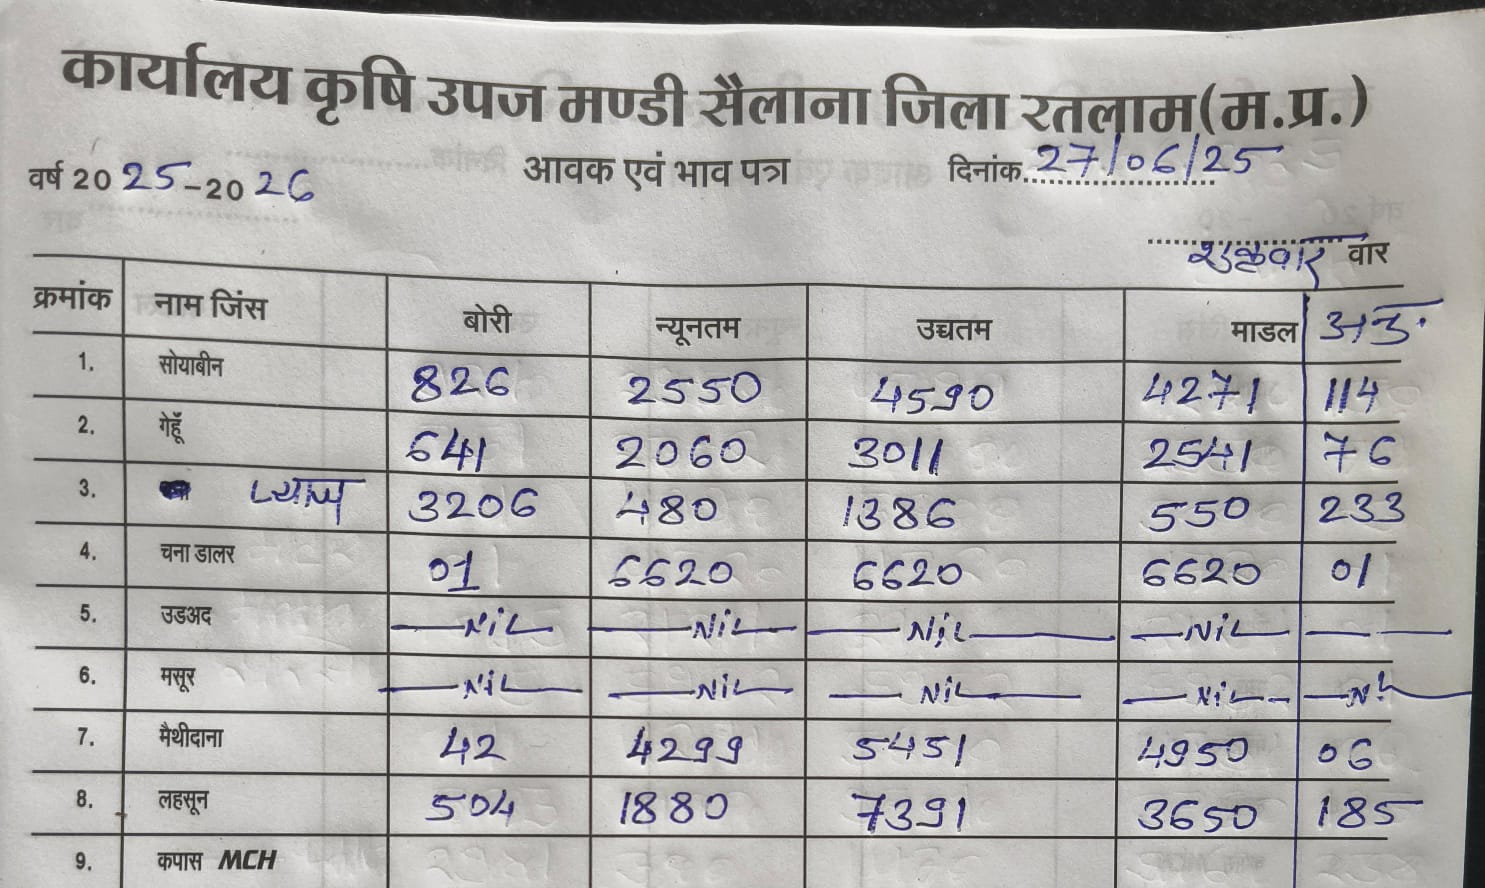 कार्यालय कृषि उपज मण्डी सैलाना जिला रतलाम(म.प्र.)
वर्ष 2025-2026 आवक एवं भाव पत्र दिनांक..27/06/25
शुक्रवार वार
क्रमांक नाम जिंस बोरी न्यूनतम उच्चतम माडल
1. सोयाबीन 826 2550 4590 4271 114
2. गेहूँ 641 2060 3011 2541 76
3. प्याज 3206 480 1386 550 233
4. चना डालर 01 6620 6620 6620 01
5. उडअद —NiL— —NiL— —NiL— —NiL— — —
6. मसूर —NiL— —NiL— —NiL— —NiL— —NiL—
7. मैथीदाना 42 4299 5451 4950 06
8. लहसून 504 1880 7391 3650 185
9. कपास MCH